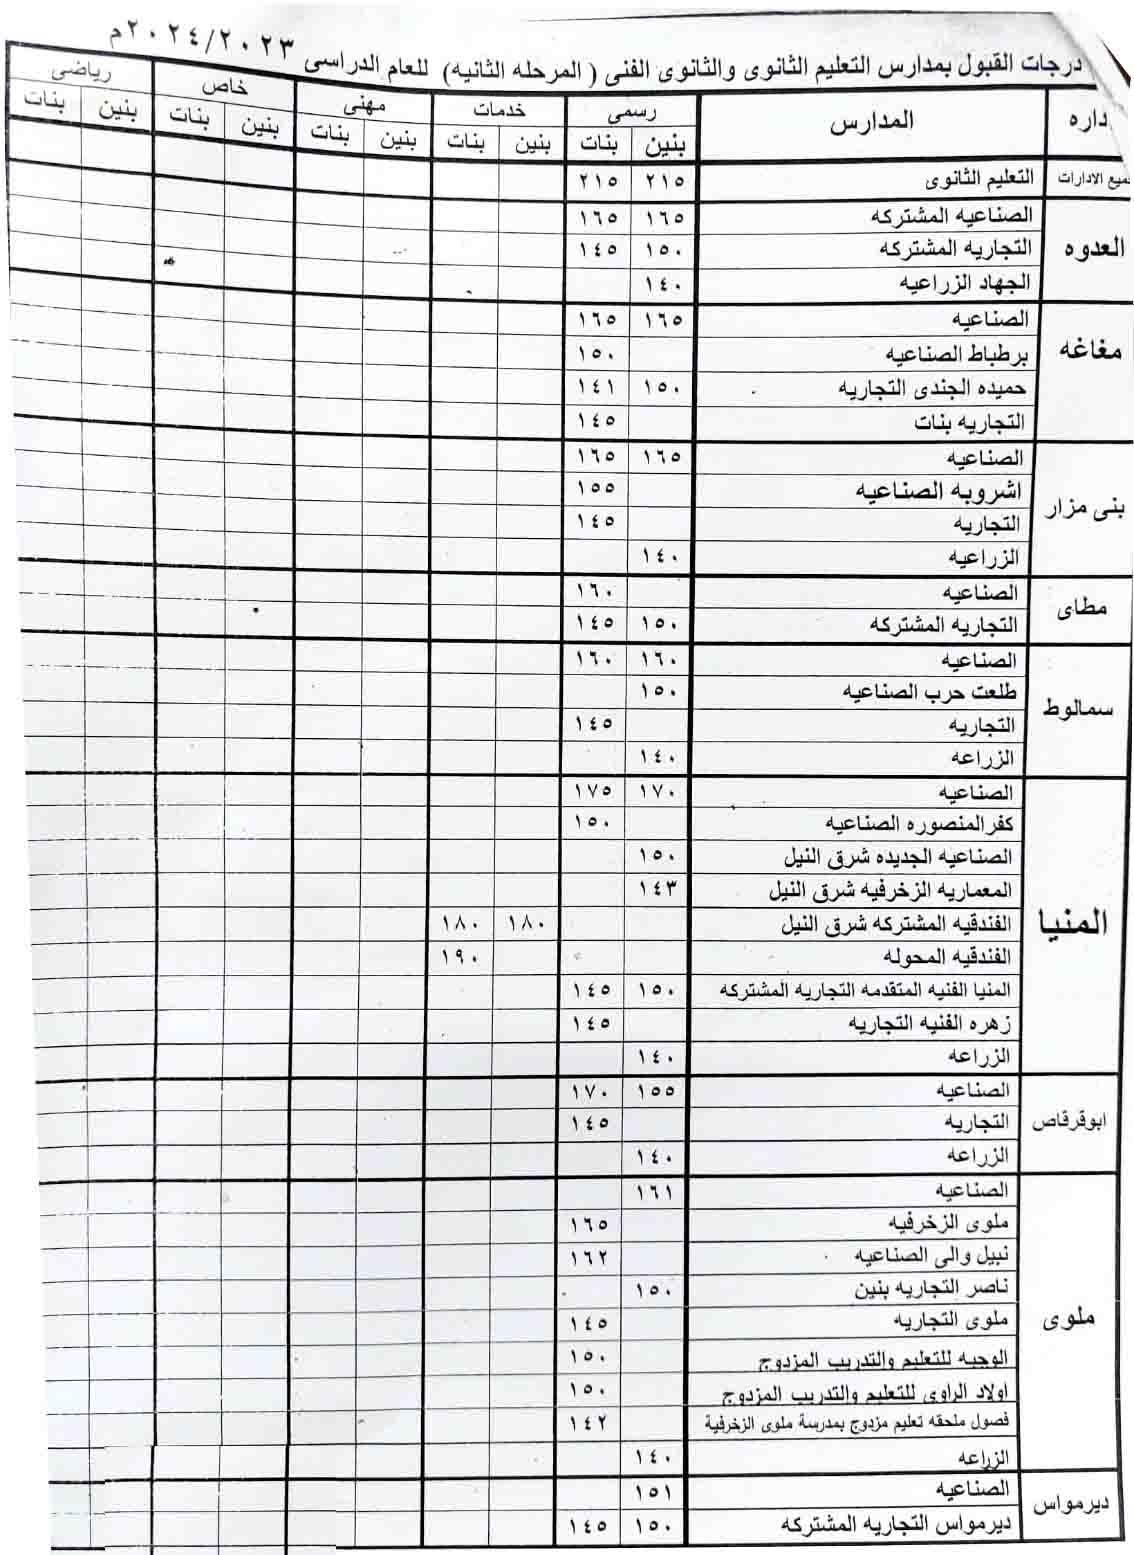 درجات القبول بمدارس التعليم الثانوى والثانوى الفنى ( المرحله الثانيه) للعام الدراسى ٢٠٢٤/٢٠٢٣م
داره المدارس رسمى خدمات مهنى خاص رياضى
بنين بنات بنين بنات بنين بنات بنين بنات بنين بنات
ميع الادارات التعليم الثانوى ٢١٥ ٢١٥
العدوه
الصناعيه المشتركه ١٦٥ ١٦٥
التجاريه المشتركه ١٥٠ ١٤٥
الجهاد الزراعيه ١٤٠
مغاغه
الصناعيه ١٦٥ ١٦٥
برطباط الصناعيه ١٥٠
حميده الجندى التجاريه ١٥٠ ١٤١
التجاريه بنات ١٤٥
بنى مزار
الصناعيه ١٦٥ ١٦٥
اشروبه الصناعيه ١٥٥
التجاريه ١٤٥
الزراعيه ١٤٠
مطاى
الصناعيه ١٦٠
التجاريه المشتركه ١٥٠ ١٤٥
سمالوط
الصناعيه ١٦٠ ١٦٠
طلعت حرب الصناعيه ١٥٠
التجاريه ١٤٥
الزراعه ١٤٠
المنيا
الصناعيه ١٧٠ ١٧٥
كفرالمنصوره الصناعيه ١٥٠
الصناعيه الجديده شرق النيل ١٥٠
المعماريه الزخرفيه شرق النيل ١٤٣
الفندقيه المشتركه شرق النيل ١٨٠ ١٨٠
الفندقيه المحوله ١٩٠
المنيا الفنيه المتقدمه التجاريه المشتركه ١٥٠ ١٤٥
زهره الفنيه التجاريه ١٤٥
الزراعه ١٤٠
ابوقرقاص
الصناعيه ١٥٥ ١٧٠
التجاريه ١٤٥
الزراعه ١٤٠
ملوى
الصناعيه ١٦١
ملوى الزخرفيه ١٦٥
نبيل والى الصناعيه ١٦٢
ناصر التجاريه بنين ١٥٠
ملوى التجاريه ١٤٥
الوجيه للتعليم والتدريب المزدوج ١٥٠
اولاد الراوى للتعليم والتدريب المزدوج ١٥٠
فصول ملحقه تعليم مزدوج بمدرسة ملوى الزخرفية ١٤٢
الزراعه ١٤٠
ديرمواس
الصناعيه ١٥١
ديرمواس التجاريه المشتركه ١٥٠ ١٤٥